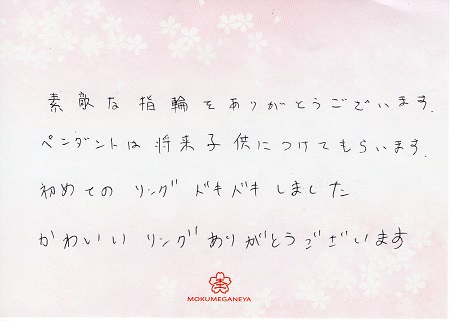 素敵な指輪をありがとうございます.
ペンダントは将来子供につけてもらいます.
初めてのリングドキドキしました
かわいいリングありがとうございます
MOKUMEGANEYA